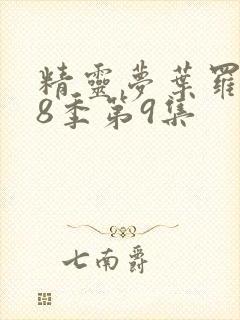 精靈夢葉羅
8季第9集
七南爵